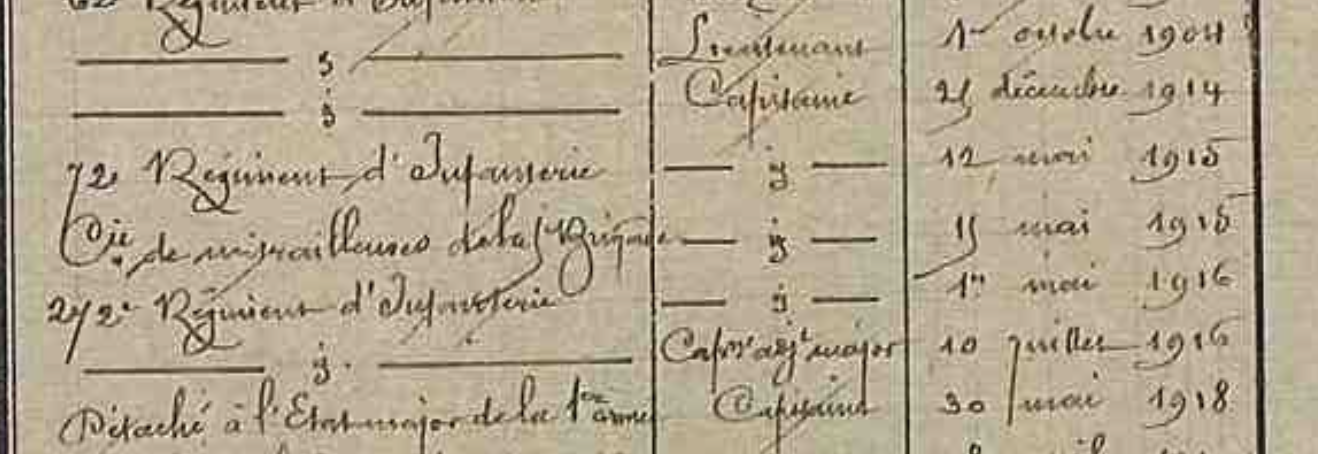 Régiment d'Infanterie
— " — Lieutenant 1er octobre 1904
— " — Capitaine 25 décembre 1914
72e Régiment d'Infanterie — " — 12 mai 1915
Cie de mitrailleuses de la Brigade — " — 15 mai 1915
272e Régiment d'Infanterie — " — 1er mai 1916
— " — Capne adjt major 10 juillet 1916
Détaché à l'Etat major de la 1ère armée Capitaine 30 mai 1918